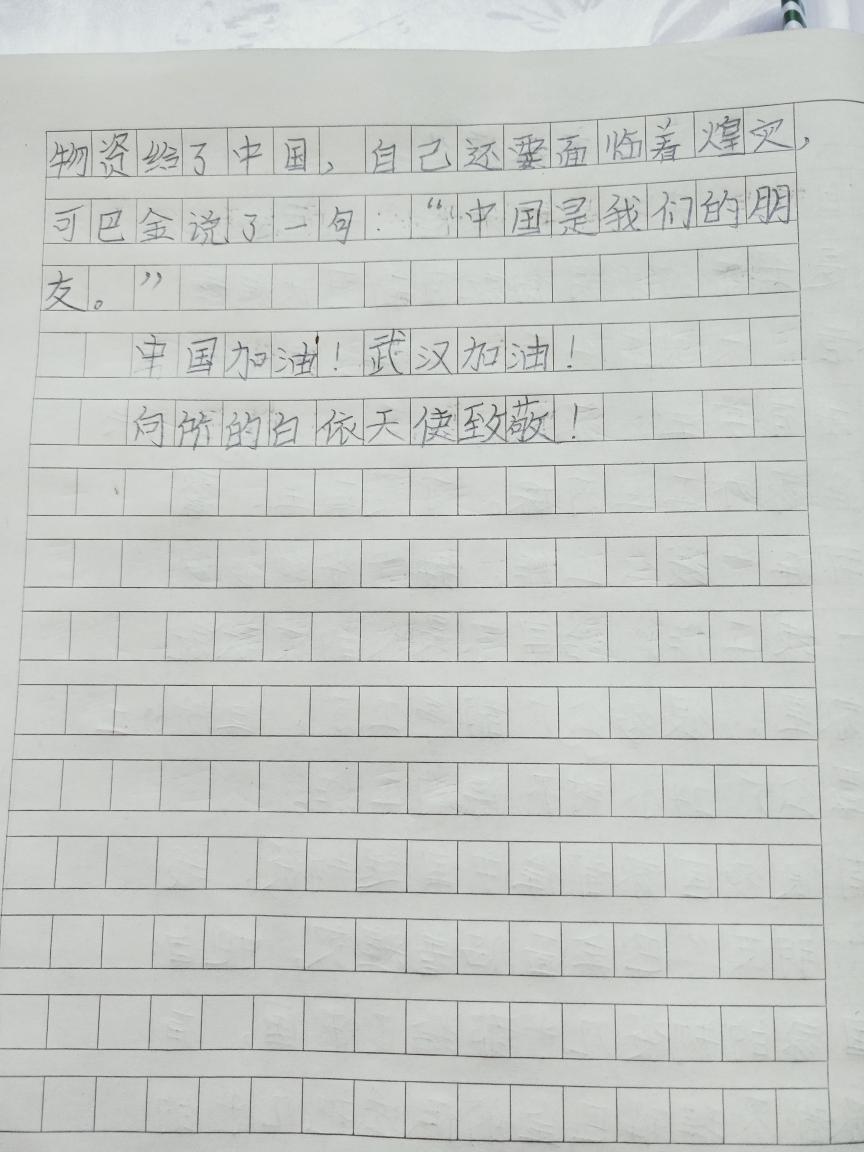 物资给了中国，自己还要面临着煌灾，
可巴金说了一句：“中国是我们的朋
友。”
中国加油！武汉加油！
向所的白依天使致敬！